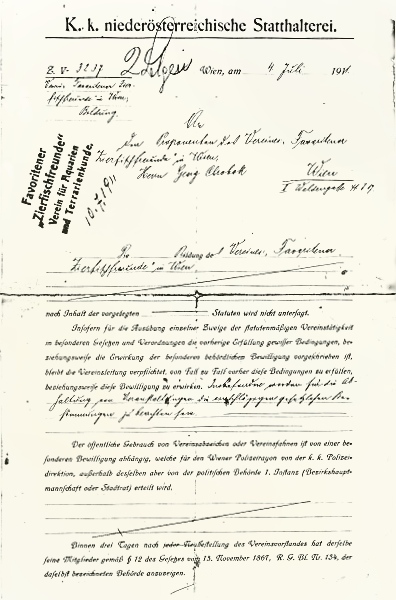 K. k. niederösterreichische Statthalterei.
Z. V- 3237
Wien, am 4. Juli 191
Verein Favoritner Zier-
fischfreunde in Wien,
Bildung
Favoritener
„Zierfischfreunde“
Verein für Aquarien
und Terrarienkunde.
10. 7. 1911
An
den Proponenten des Vereines, Favoritner
Zierfischfreunde in Wien,
Herrn Georg
Wien
X
Die Bildung des Vereines, Favoritner
Zierfischfreunde in Wien
nach Inhalt der vorgelegten Statuten wird nicht untersagt.
Insofern für die Ausübung einzelner Zweige der statutenmäßigen Vereinstätigkeit
in besonderen Gesetzen und Verordnungen die vorherige Erfüllung gewisser Bedingungen, be-
ziehungsweise die Erwirkung der besonderen behördlichen Bewilligung vorgeschrieben ist,
bleibt die Vereinsleitung verpflichtet, von Fall zu Fall vorher diese Bedingungen zu erfüllen,
beziehungsweise diese Bewilligung zu erwirken. Insbesondere werden für die Ab-
haltung von Veranstaltungen die einschlägigen gesetzlichen Be-
stimmungen zu beachten sein.
Der öffentliche Gebrauch von Vereinsabzeichen oder Vereinsfahnen ist von einer be-
sonderen Bewilligung abhängig, welche für den Wiener Polizeirayon von der k. k. Polizei-
direktion, außerhalb desselben aber von der politischen Behörde I. Instanz (Bezirkshaupt-
mannschaft oder Stadtrat) erteilt wird.
Binnen drei Tagen nach jeder Neubestellung des Vereinsvorstandes hat derselbe
seine Mitglieder gemäß § 12 des Gesetzes vom 15. November 1867, R. G. Bl. Nr. 134, der
daselbst bezeichneten Behörde anzuzeigen.